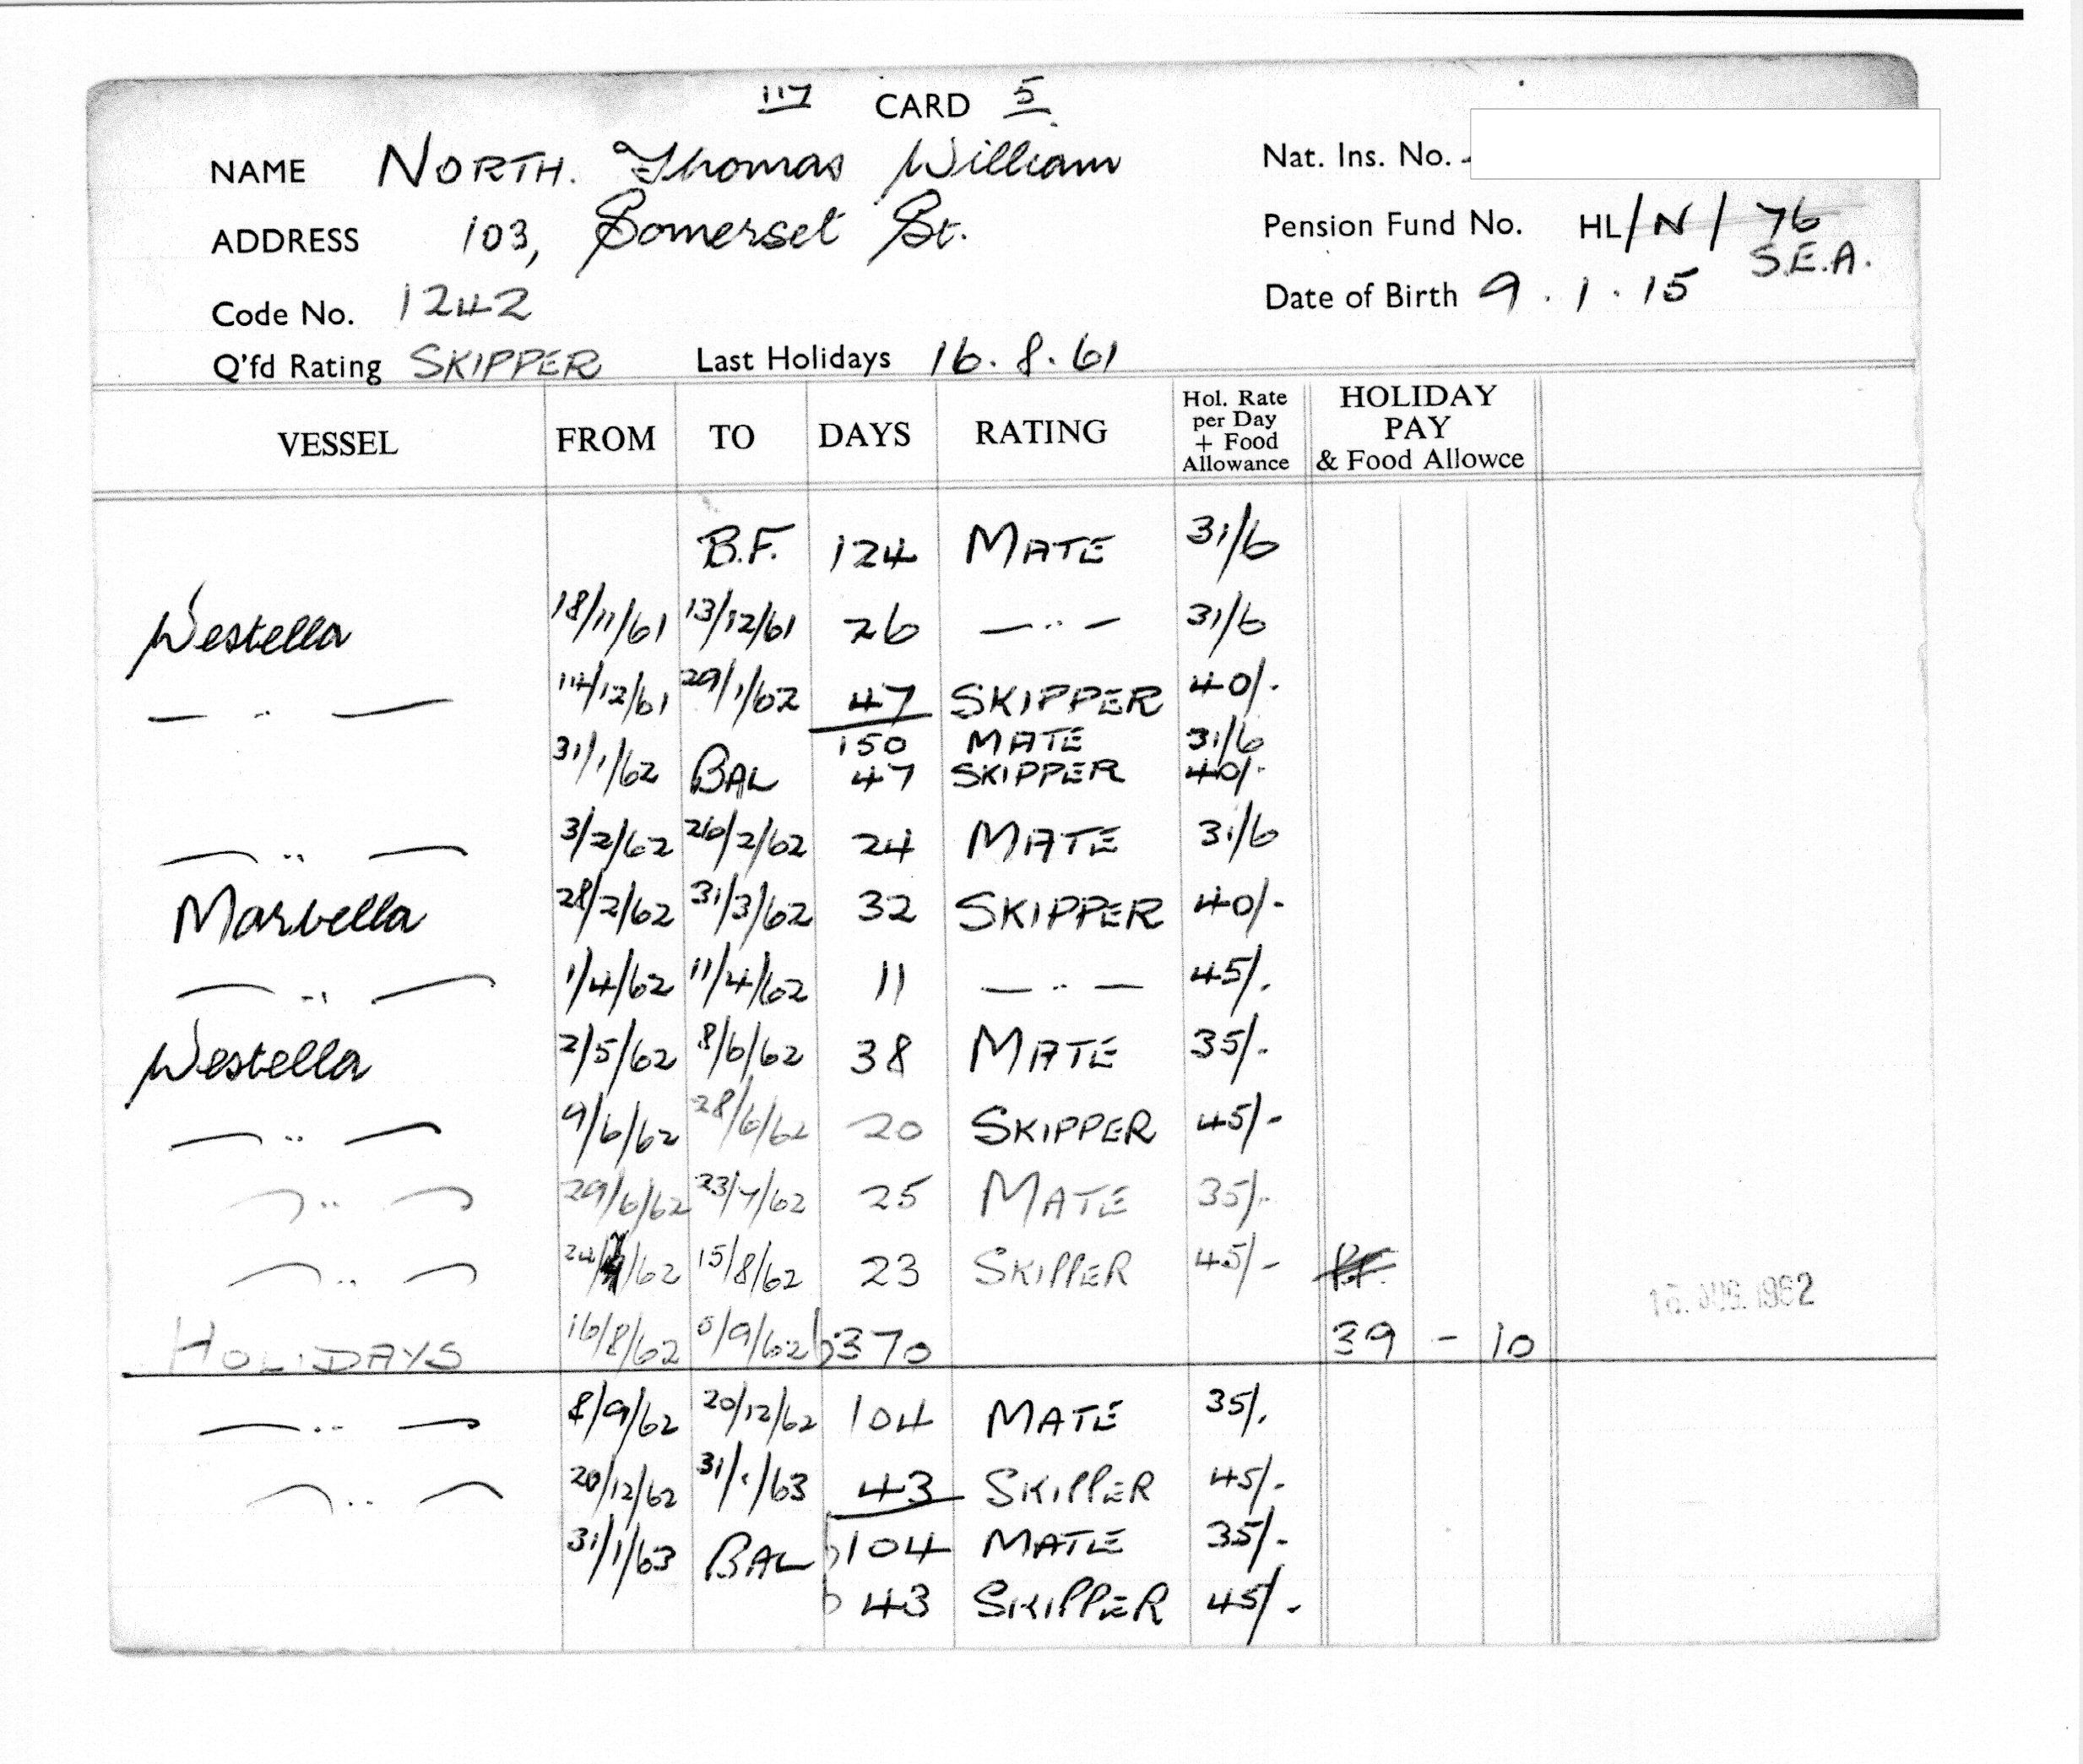 117 CARD 5
NAME NORTH. Thomas William Nat. Ins. No.
ADDRESS 103, Somerset St. Pension Fund No. HL/N/76
S.E.A.
Code No. 1242 Date of Birth 9.1.15
Q'fd Rating SKIPPER Last Holidays 16.8.61
VESSEL FROM TO DAYS RATING Hol. Rate per Day + Food Allowance HOLIDAY PAY & Food Allowce
B.F. 124 MATE 31/6
Westella 18/11/61 13/12/61 26 — ·· — 31/6
— ·· — 14/12/61 29/1/62 47 SKIPPER 40/-
31/1/62 BAL 150 MATE 31/6
47 SKIPPER 40/-
— ·· — 3/2/62 26/2/62 24 MATE 31/6
Marbella 28/2/62 31/3/62 32 SKIPPER 40/-
— ·· — 1/4/62 11/4/62 11 — ·· — 45/.
Westella 2/5/62 8/6/62 38 MATE 35/-
— ·· — 9/6/62 28/6/62 20 SKIPPER 45/-
— ·· — 29/6/62 23/7/62 25 MATE 35/-
— ·· — 24/7/62 15/8/62 23 SKIPPER 45/-
15. AUG. 1962
HOLIDAYS 16/8/62 /9/62 370 39 - 10
— ·· — 8/9/62 20/12/62 104 MATE 35/.
— ·· — 20/12/62 31/1/63 43 SKIPPER 45/-
31/1/63 BAL 104 MATE 35/-
43 SKIPPER 45/-